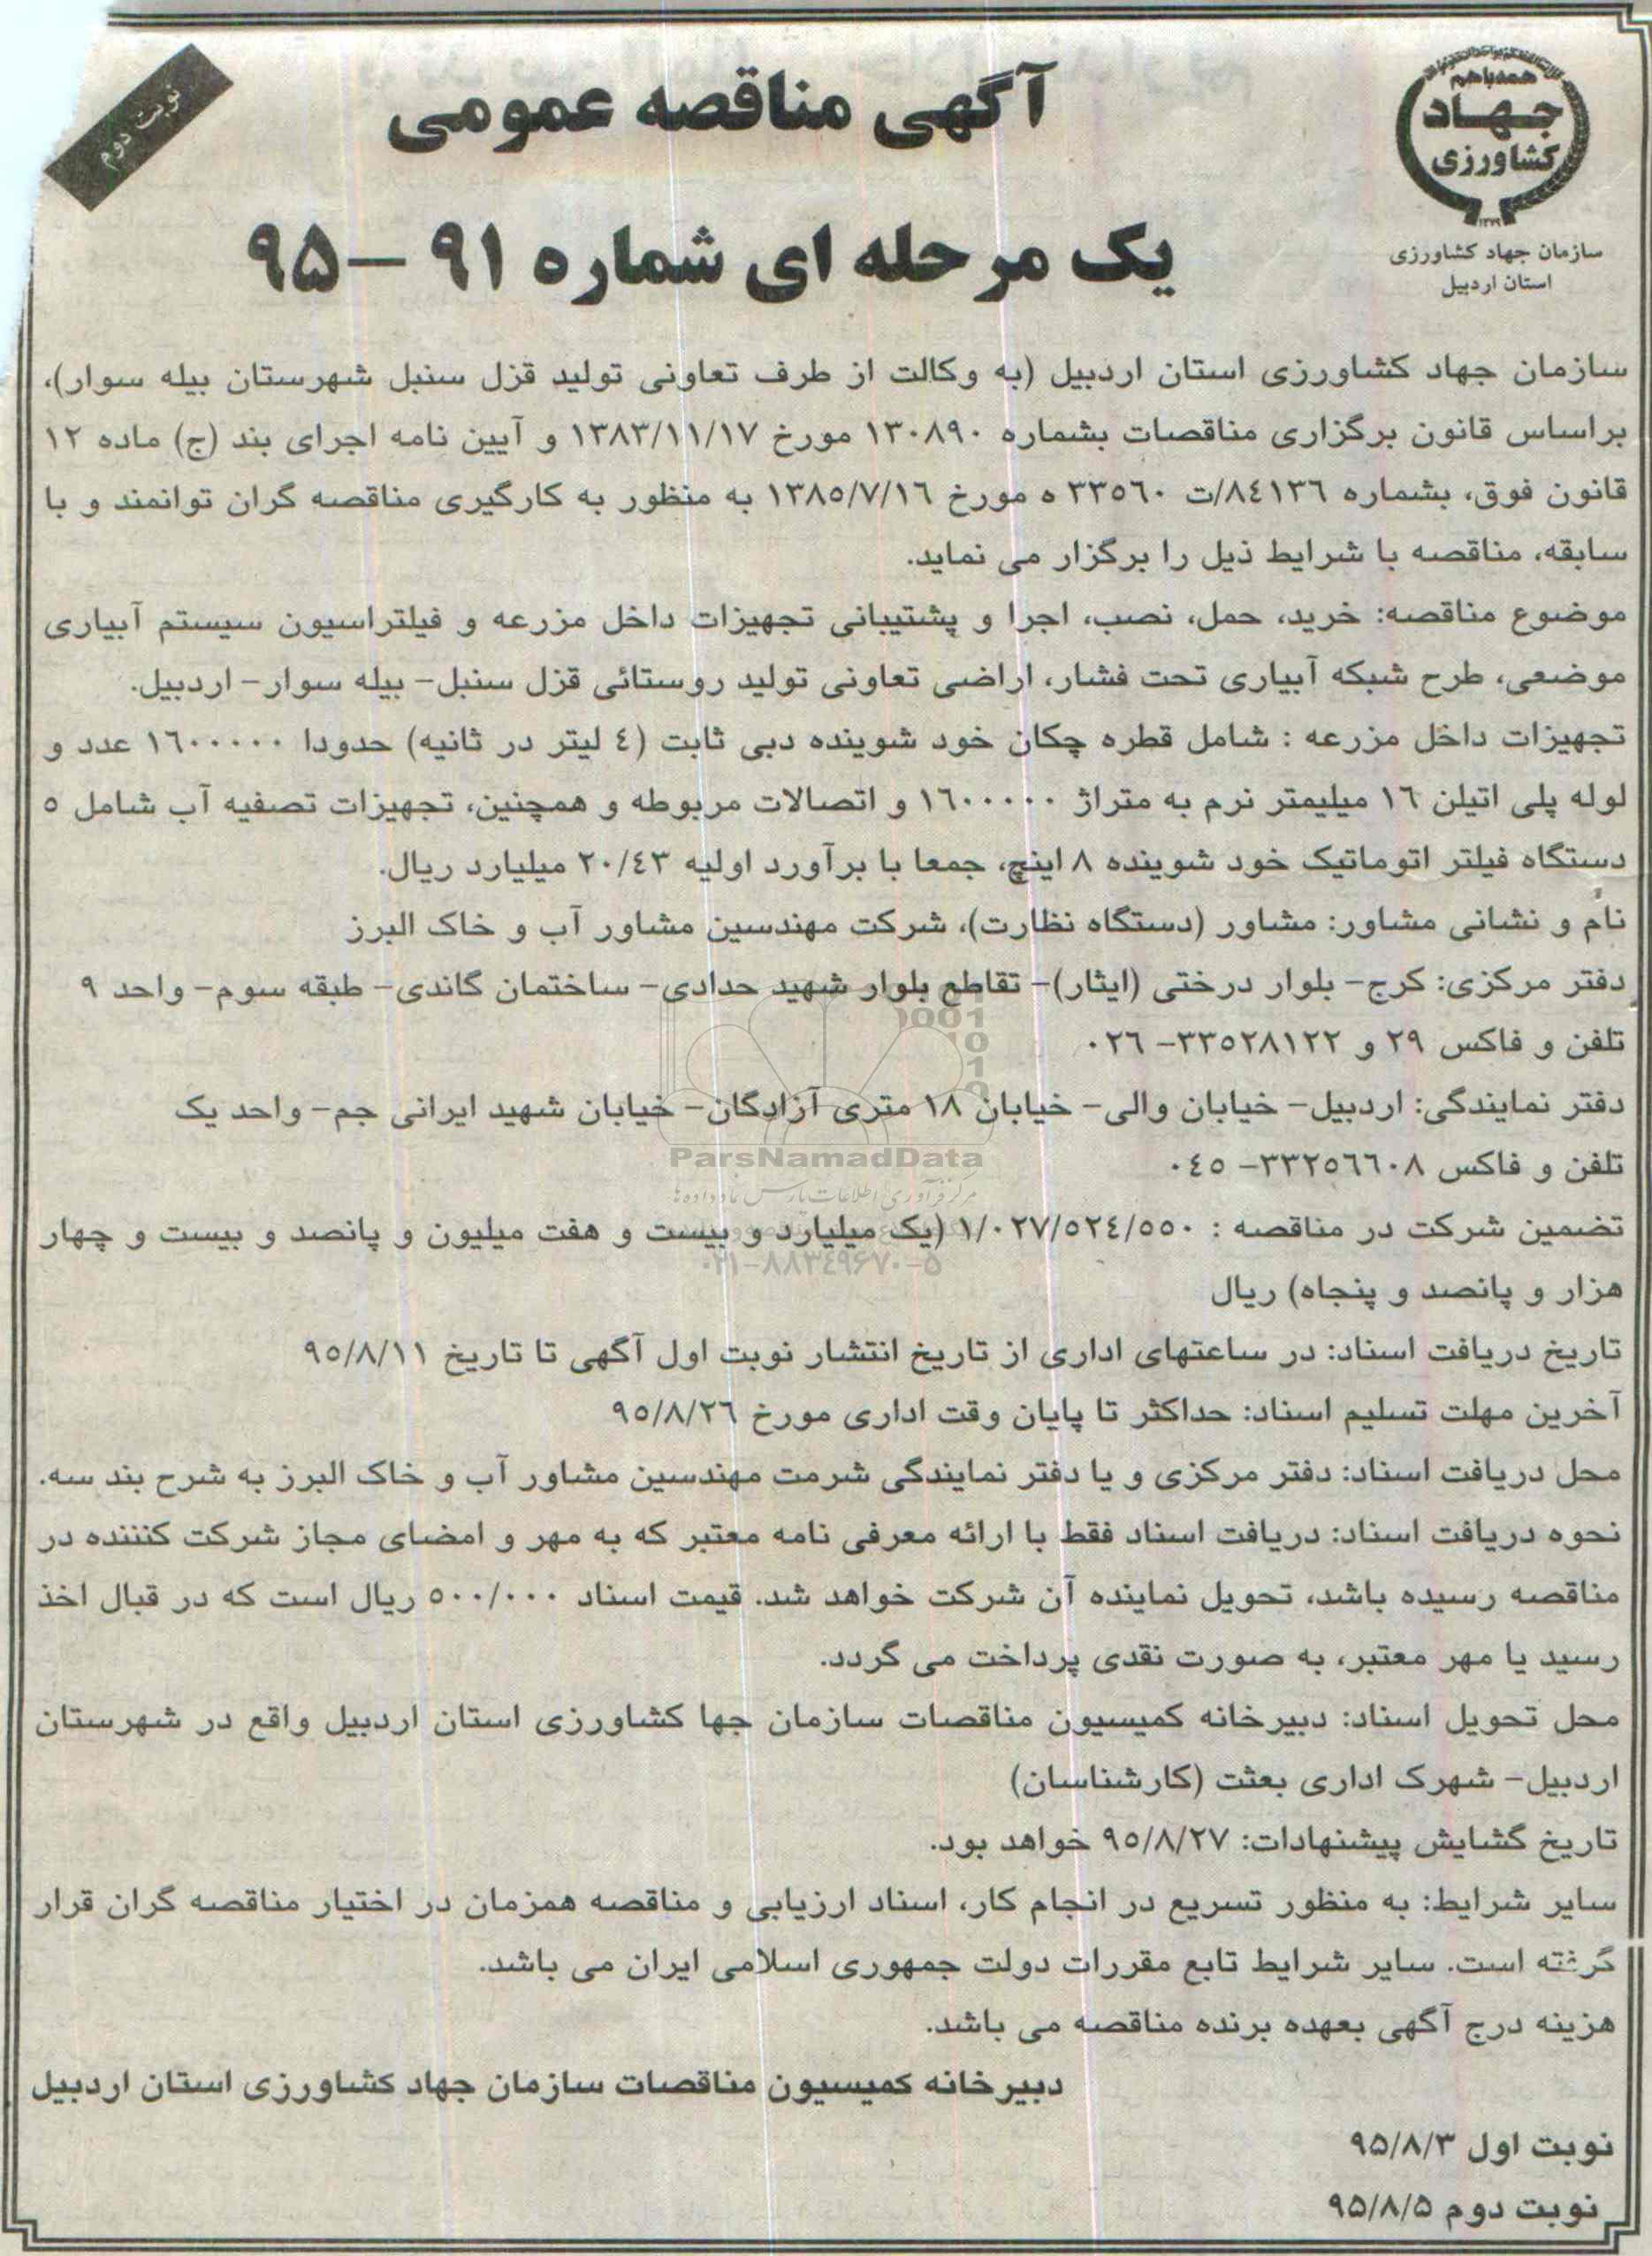 نوبت دوم
همه با هم
جهاد
کشاورزی
۱۳۷۹
سازمان جهاد کشاورزی
استان اردبیل
آگهی مناقصه عمومی
یک مرحله ای شماره ۹۱ -۹۵
سازمان جهاد کشاورزی استان اردبیل (به وکالت از طرف تعاونی تولید قزل سنبل شهرستان بیله سوار)،
براساس قانون برگزاری مناقصات بشماره ۱۳۰۸۹۰ مورخ ۱۳۸۳/۱۱/۱۷ و آیین نامه اجرای بند (ج) ماده ۱۲
قانون فوق، بشماره ۸٤۱۳٦/ت ۳۳٥٦۰ ه مورخ ۱۳۸٥/۷/۱٦ به منظور به کارگیری مناقصه گران توانمند و با
سابقه، مناقصه با شرایط ذیل را برگزار می نماید.
موضوع مناقصه: خرید، حمل، نصب، اجرا و پشتیبانی تجهیزات داخل مزرعه و فیلتراسیون سیستم آبیاری
موضعی، طرح شبکه آبیاری تحت فشار، اراضی تعاونی تولید روستائی قزل سنبل- بیله سوار- اردبیل.
تجهیزات داخل مزرعه : شامل قطره چکان خود شوینده دبی ثابت (٤ لیتر در ثانیه) حدودا ۱٦۰۰۰۰۰ عدد و
لوله پلی اتیلن ۱٦ میلیمتر نرم به متراژ ۱٦۰۰۰۰۰ و اتصالات مربوطه و همچنین، تجهیزات تصفیه آب شامل ٥
دستگاه فیلتر اتوماتیک خود شوینده ۸ اینچ، جمعا با برآورد اولیه ۲۰/٤۳ میلیارد ریال.
نام و نشانی مشاور: مشاور (دستگاه نظارت)، شرکت مهندسین مشاور آب و خاک البرز
دفتر مرکزی: کرج- بلوار درختی (ایثار)- تقاطع بلوار شهید حدادی- ساختمان گاندی- طبقه سوم- واحد ۹
تلفن و فاکس ۲۹ و ۳۳٥۲۸۱۲۲- ۰۲٦
دفتر نمایندگی: اردبیل- خیابان والی- خیابان ۱۸ متری آزادگان- خیابان شهید ایرانی جم- واحد یک
ParsNamadData
تلفن و فاکس ۳۳۲٥٦٦۰۸- ۰٤٥
مرکز فرآوری اطلاعات پارس نماد داده ها
تضمین شرکت در مناقصه : ۱/۰۲۷/٥۲٤/٥٥۰ (یک میلیارد و بیست و هفت میلیون و پانصد و بیست و چهار
۰۲۱-۸۸۳۴۹۶۷۰-۵
هزار و پانصد و پنجاه) ریال
تاریخ دریافت اسناد: در ساعتهای اداری از تاریخ انتشار نوبت اول آگهی تا تاریخ ۹٥/۸/۱۱
آخرین مهلت تسلیم اسناد: حداکثر تا پایان وقت اداری مورخ ۹٥/۸/۲٦
محل دریافت اسناد: دفتر مرکزی و یا دفتر نمایندگی شرمت مهندسین مشاور آب و خاک البرز به شرح بند سه.
نحوه دریافت اسناد: دریافت اسناد فقط با ارائه معرفی نامه معتبر که به مهر و امضای مجاز شرکت کنننده در
مناقصه رسیده باشد، تحویل نماینده آن شرکت خواهد شد. قیمت اسناد ٥۰۰/۰۰۰ ریال است که در قبال اخذ
رسید یا مهر معتبر، به صورت نقدی پرداخت می گردد.
محل تحویل اسناد: دبیرخانه کمیسیون مناقصات سازمان جها کشاورزی استان اردبیل واقع در شهرستان
اردبیل- شهرک اداری بعثت (کارشناسان)
تاریخ گشایش پیشنهادات: ۹٥/۸/۲۷ خواهد بود.
سایر شرایط: به منظور تسریع در انجام کار، اسناد ارزیابی و مناقصه همزمان در اختیار مناقصه گران قرار
گرفته است. سایر شرایط تابع مقررات دولت جمهوری اسلامی ایران می باشد.
هزینه درج آگهی بعهده برنده مناقصه می باشد.
دبیرخانه کمیسیون مناقصات سازمان جهاد کشاورزی استان اردبیل
نوبت اول ۹۵/۸/۳
نوبت دوم ۹۵/۸/۵